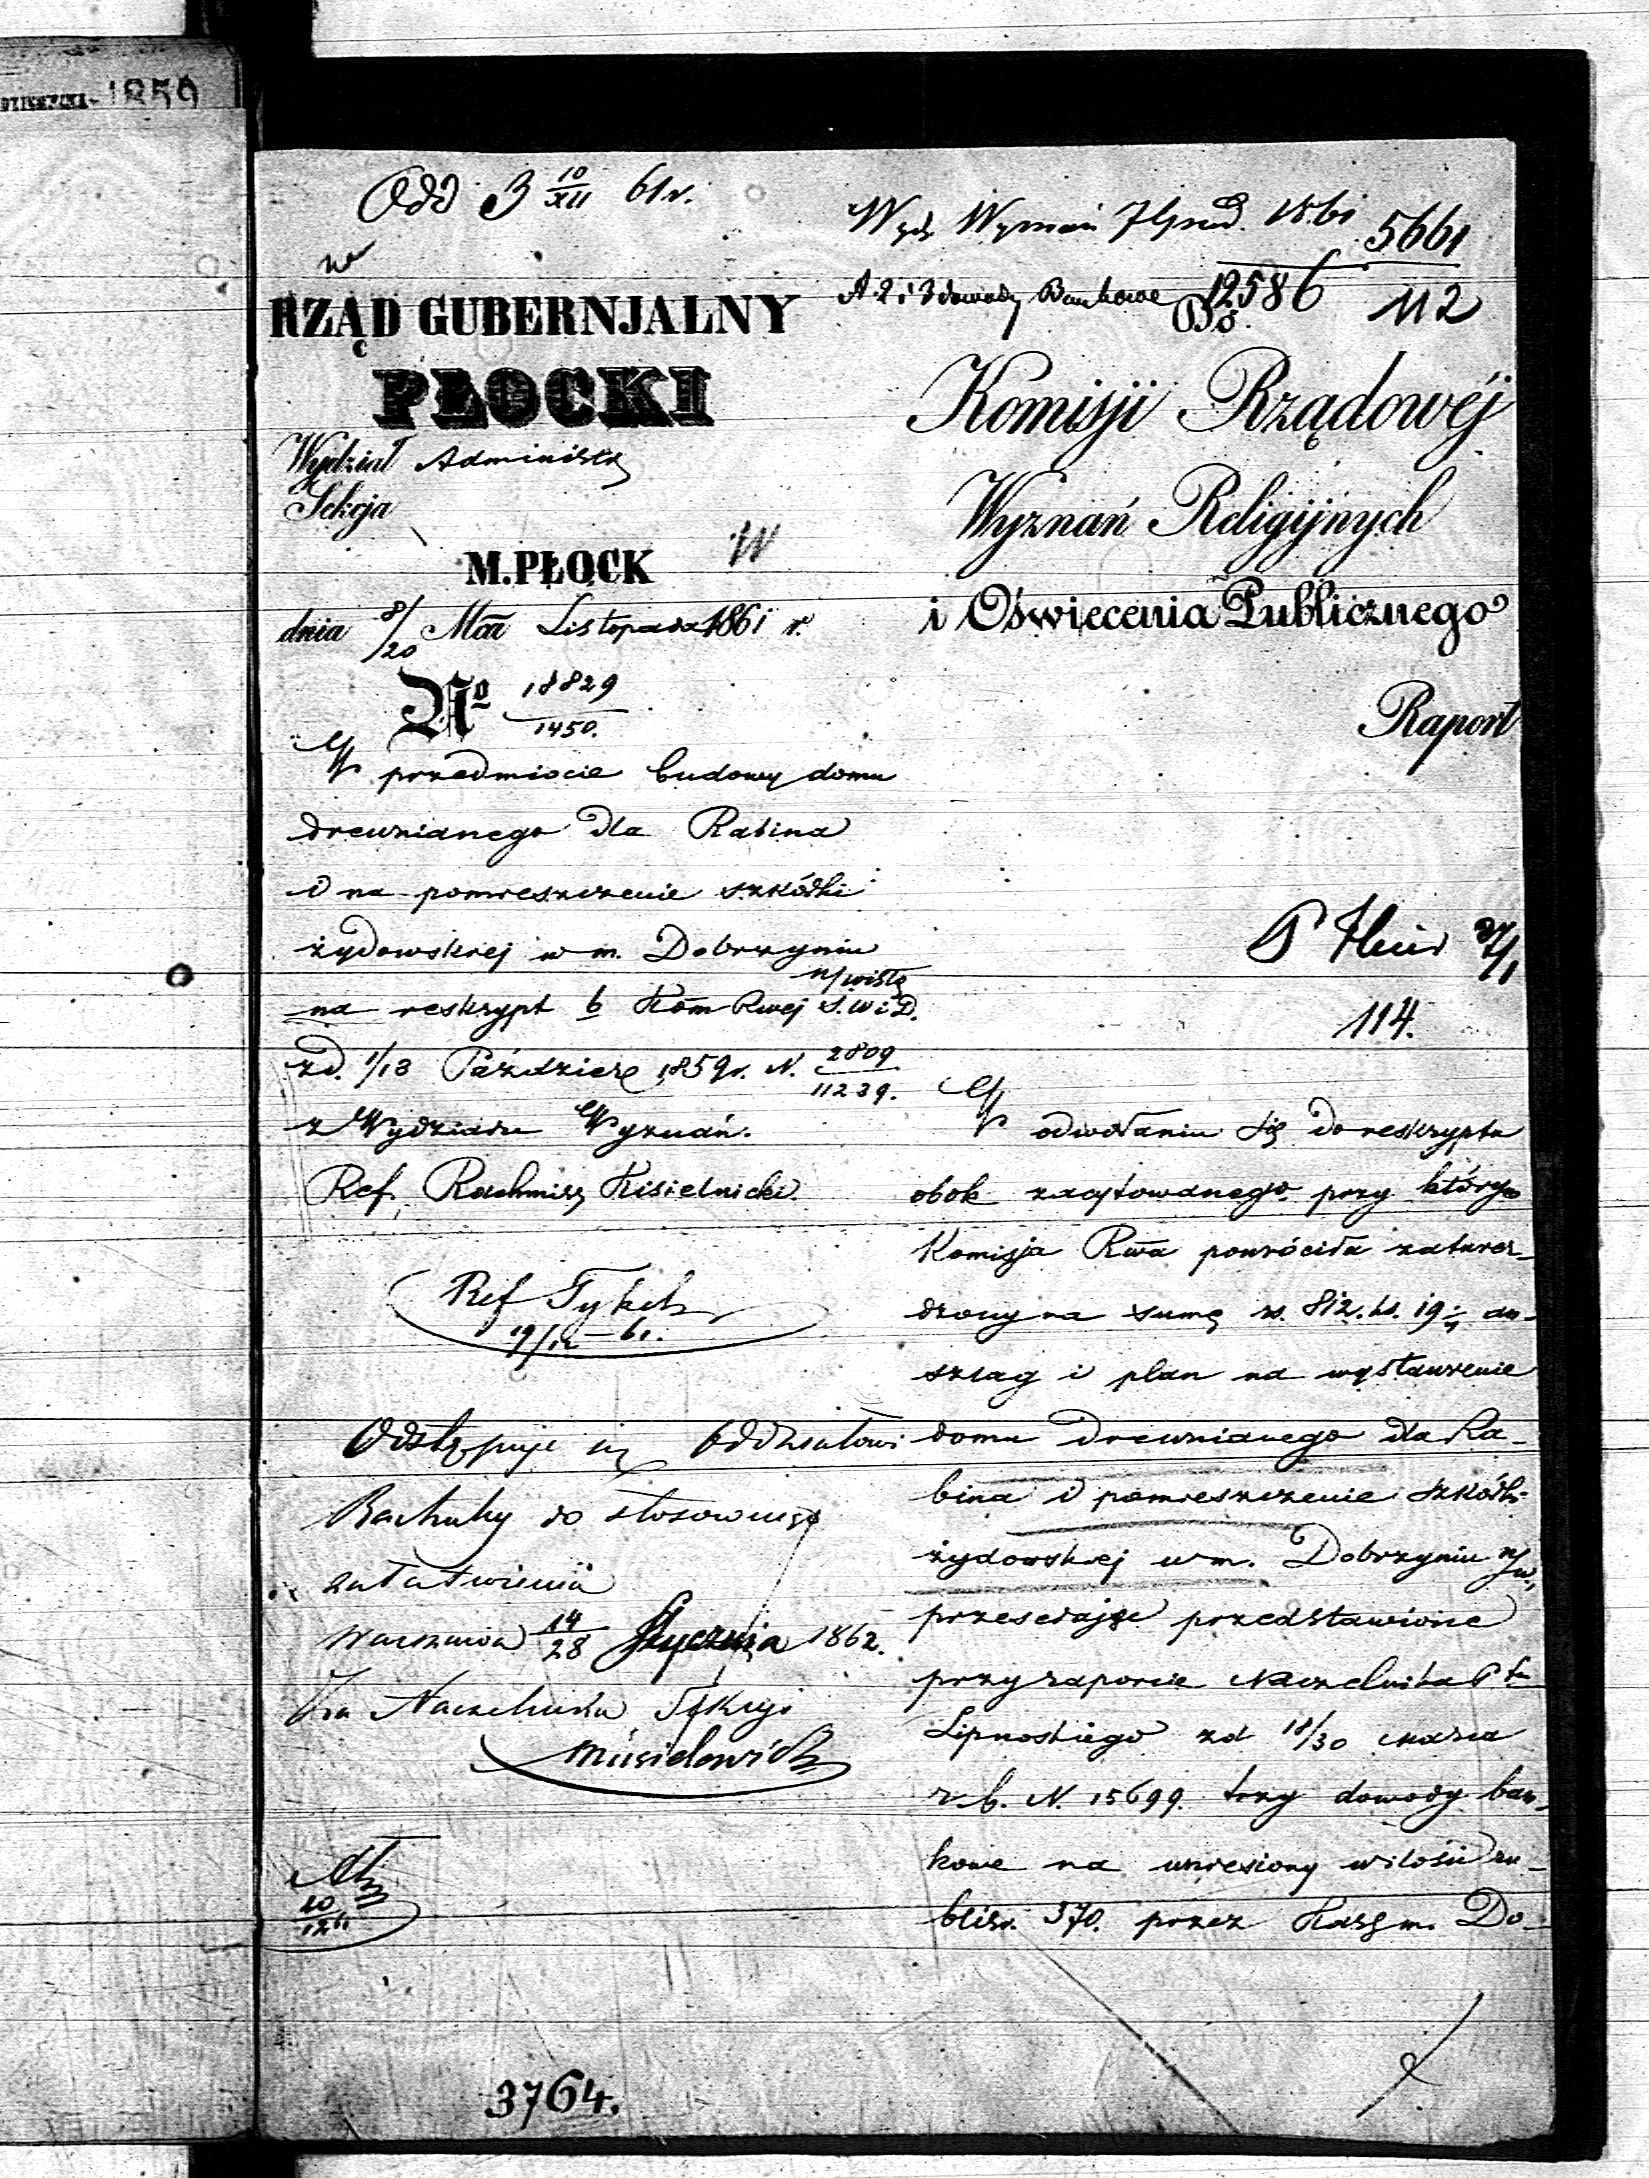 1859
Odd 3 10/XII 61 r.
Wydz Wyznań 7 Grud. 1861
5661
112
A 2 i 3 dowody Bankowe
12586
RZĄD GUBERNJALNY
PŁOCKI
Wydział Administr
Sekcja
M. PŁOCK
dnia 8/20 Mca Listopada 1861 r.
No 18829/1450.
W przedmiocie budowy domu
drewnianego dla Rabina
i na pomieszczenie szkółki
żydowskiej w m. Dobrzyniu
n/wisłą
na reskrypt b Kom Rwej S. W i D.
zd. 1/13 Paździer 1859 r. N. 2809/11239.
z Wydziału Wyznań.
Ref. Kisielnicki
Ref
19/12 – 61.
Odstępuje się Oddziałowi
Rachuby do stosownego
załatwienia
Warszawa 14/28 Stycznia 1862.
Za Naczelnika Sekcji
Musielowicz
10/12 61
Do
Komisji Rządowéj
Wyznań Religijnych
i Oświecenia Publicznego
Raport
114.
W odwołaniu się do reskryptu
obok zacytowanego przy którym
Komisja Rwa powróciła zatwier-
dzony na sumę rs. 812. k. 19 an-
szlag i plan na wystawienie
domu drewnianego dla Ra-
bina i pomieszczenie szkółki
żydowskiej w m. Dobrzyniu n/w,
przesełając przedstawione
przy raporcie Naczelnika Ptu
Lipnoskiego zd 18/30 Marca
r. b. N. 15699. trzy dowody ban-
kowe na wniesiony w ilości ru-
blisr. 370. przez Kassę m. Do-
3764.